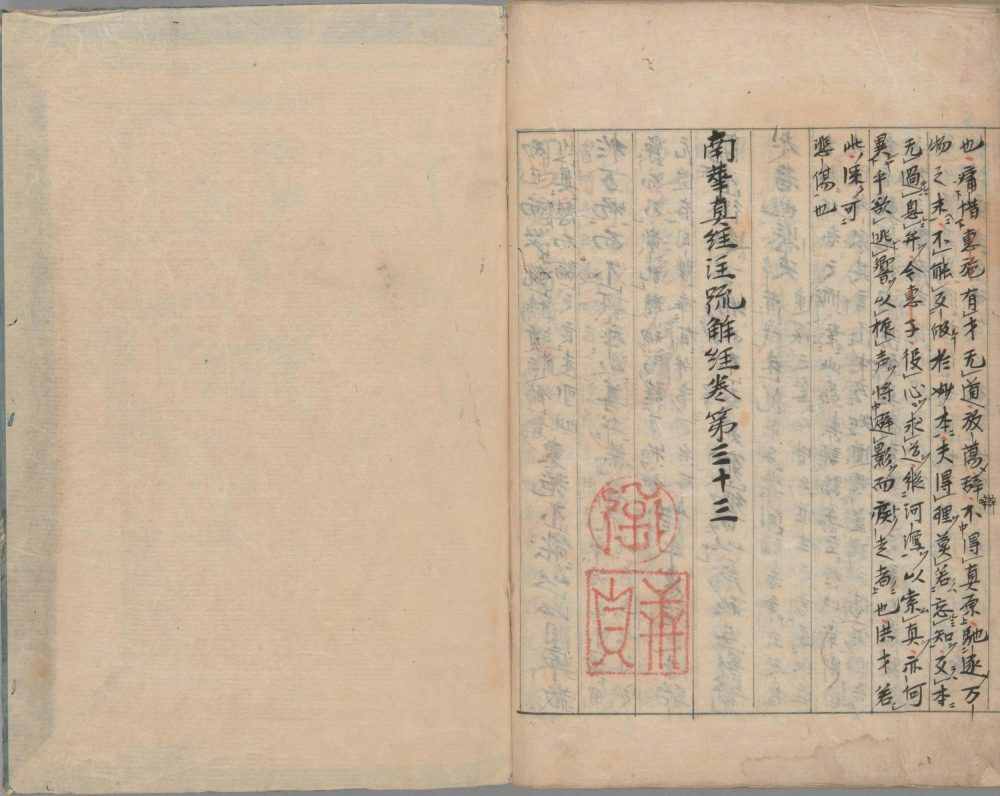 也痛惜惠施有才无道放蕩辞不得真原馳逐万
物之末不能反皈於妙本夫得理莫若忘知反本
无過息弁今惠子役心求道縱河瀉以索真亦何
異乎欲逃響以振声将避影而疾走者也洪才若
此深可
悲傷也
南華真経注疏解経巻第三十三